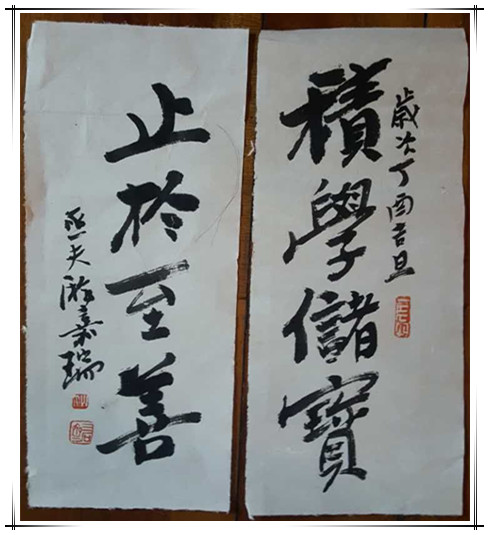 歲次丁酉吉旦
積學儲寶
止於至善
游嘉瑞